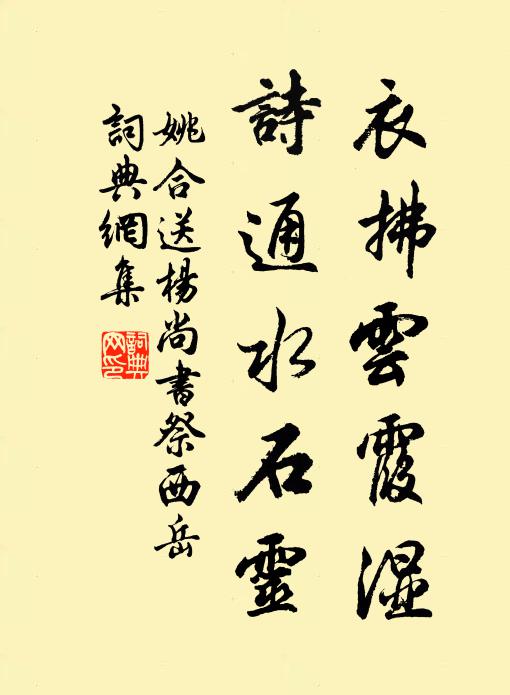 衣拂雲霞湿
詩通水石靈
姚合送楊尚書祭西岳
詞典網集
詞典
网印